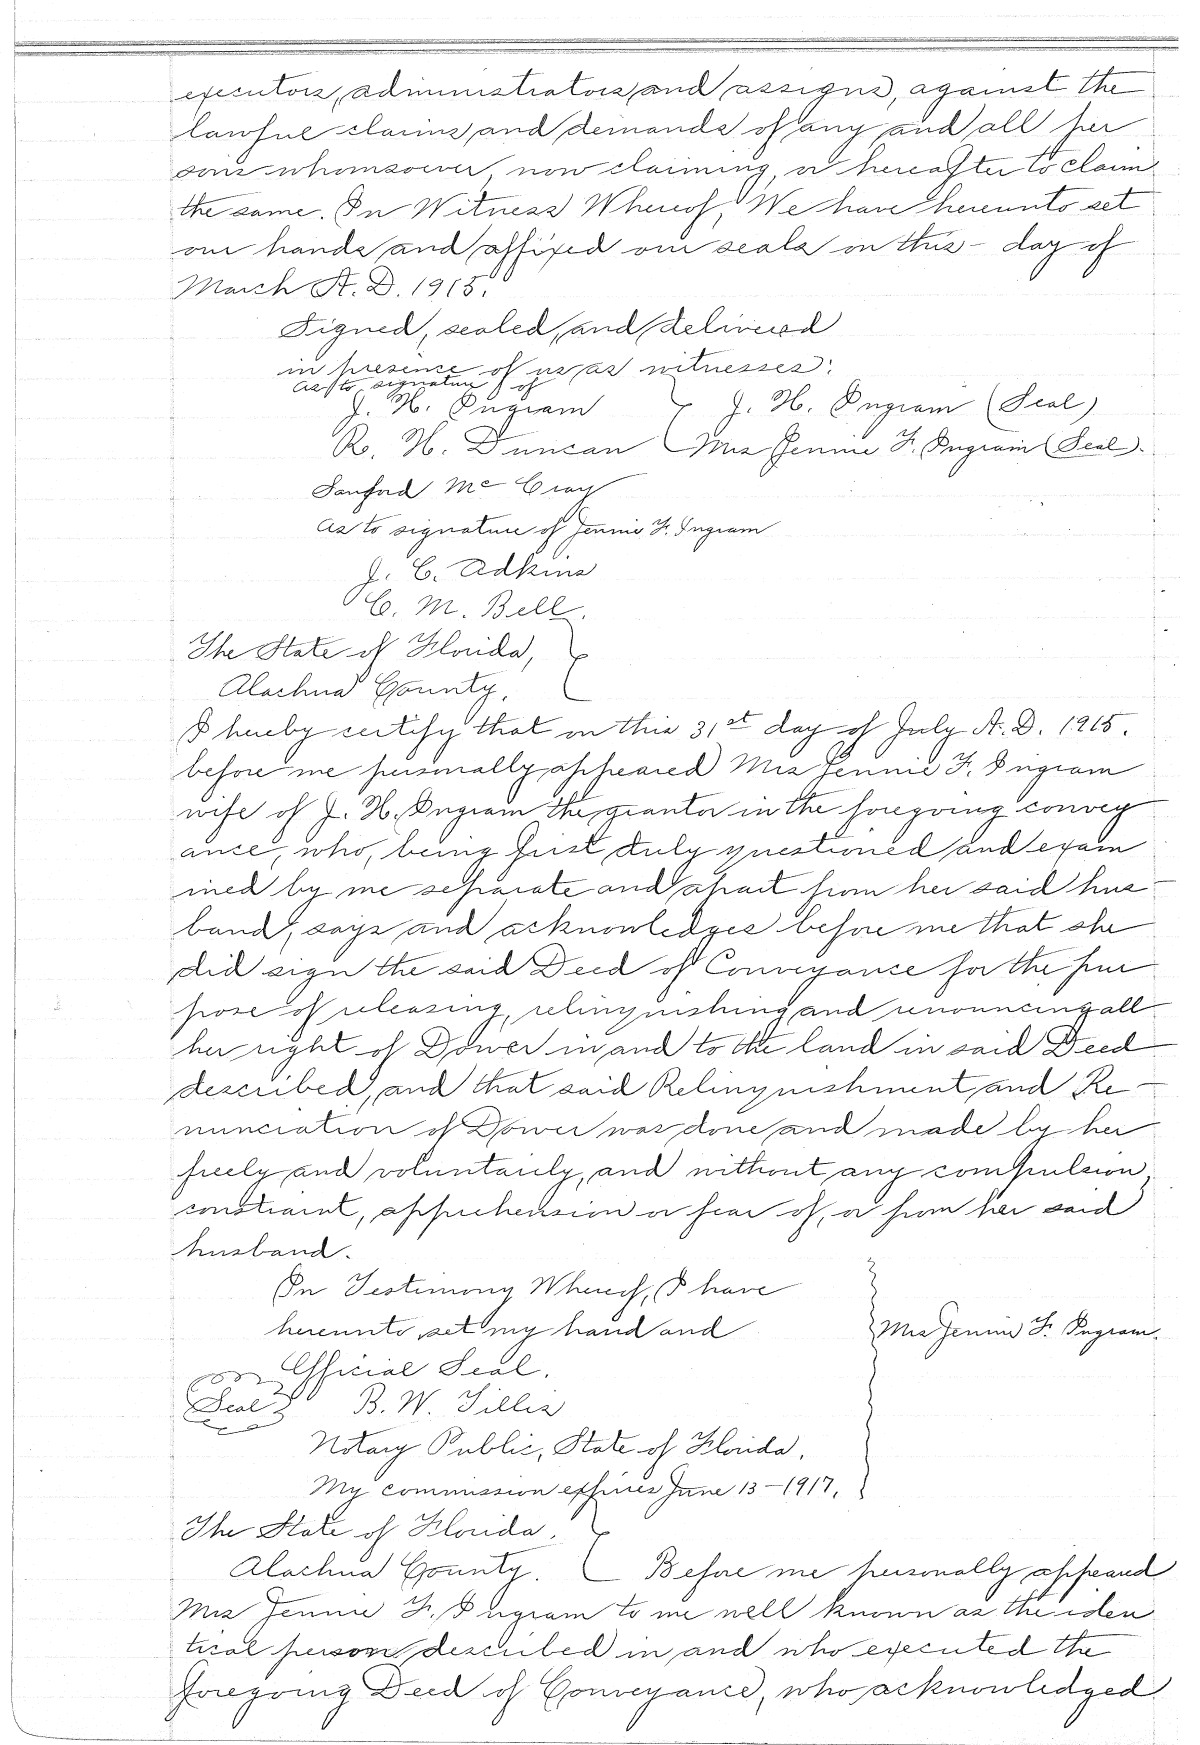 executors, administrators and assigns, against the
lawful claims and demands of any and all per
sons whomsoever, now claiming, or hereafter to claim
the same. In Witness Whereof, We have hereunto set
our hands and affixed our seals on this - day of
March A. D. 1915.
Signed, sealed, and delivered
in presence of us as witnesses:
as to signature of
J. H. Ingram J. H. Ingram (Seal)
R. H. Duncan Mrs Jennie F. Ingram (Seal).
Sanford McCray
as to signature of Jennie F. Ingram
J. C. Adkins
C. M. Bell.
The State of Florida,
Alachua County.
I hereby certify that on this 31st day of July A. D. 1915.
before me personally appeared Mrs Jennie F. Ingram
wife of J. H. Ingram the grantor in the foregoing convey
ance, who, being first duly questioned and exam
ined by me separate and apart from her said hus-
band, says and acknowledges before me that she
did sign the said Deed of Conveyance for the pur
pose of releasing, relinquishing and renouncing all
her right of Dower in and to the land in said Deed
described, and that said Relinquishment and Re-
nunciation of Dower was done and made by her
freely and voluntarily, and without any compulsion,
constraint, apprehension or fear of, or from her said
husband.
In Testimony Whereof, I have
hereunto set my hand and Mrs Jennie F. Ingram.
Official Seal.
Seal B. W. Tillis
Notary Public, State of Florida.
My commission expires June 13-1917.
The State of Florida.
Alachua County. Before me personally appeared
Mrs Jennie F. Ingram to me well known as the iden
tical person described in and who executed the
foregoing Deed of Conveyance, who acknowledged